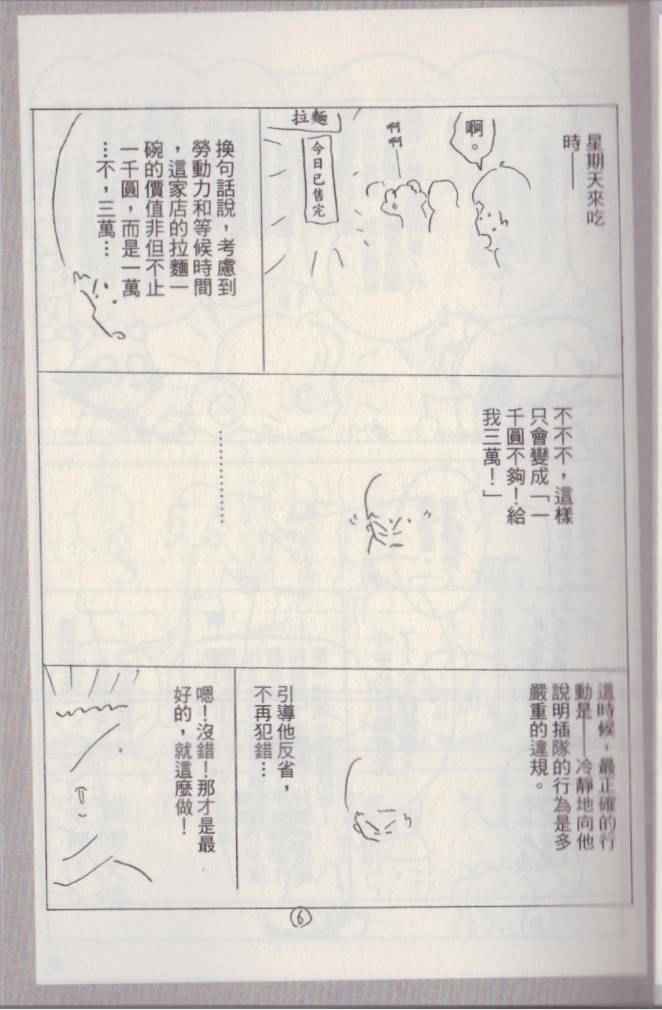 星期天來吃
時——
啊。
啊
啊——
拉麵
今日已售完
換句話說，考慮到
勞動力和等候時間
，這家店的拉麵一
碗的價值非但不止
一千圓，而是一萬
…不，三萬…
不不不，這樣
只會變成「一
千圓不夠！給
我三萬！」
……………
這時候，最正確的行
動是——冷靜地向他
說明插隊的行為是多
嚴重的違規。
引導他反省，
不再犯錯…
嗯！沒錯！那才是最
好的，就這麼做！
6